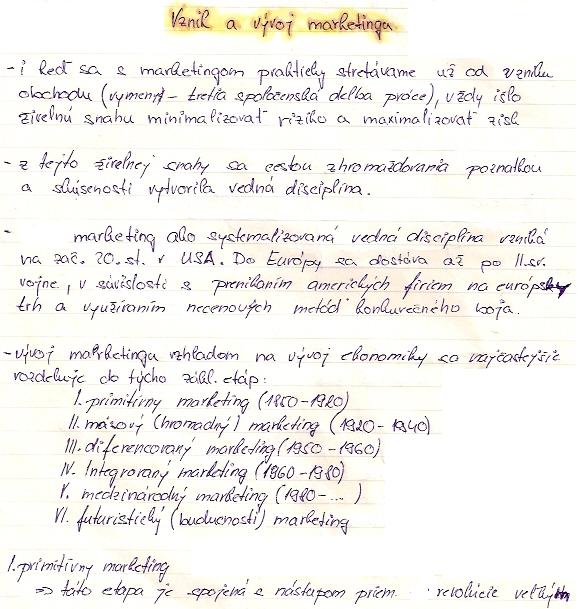 Vznik a vývoj marketingu
- i keď sa s marketingom prakticky stretávame už od vzniku
obchodu (výmeny - tretia spoločenská deľba práce), vždy išlo
živelnú snahu minimalizovať riziko a maximalizovať zisk
- z tejto živelnej snahy sa cestou zhromažďovania poznatkov
a skúseností vytvorila vedná disciplína.
- marketing ako systemalizovaná vedná disciplína vzniká
na zač. 20. st. v USA. Do Európy sa dostáva až po II.sv.
vojne, v súvislosti s prenikaním amerických firiem na európsky
trh a využívaním necenových metód konkurečného boja.
- vývoj marketingu vzhľadom na vývoj ekonomiky sa najčastejšie
rozdeľuje do týcho zákl. etáp:
I. primitívny marketing (1850-1920)
II. masový (hromadný) marketing (1920-1940)
III. diferencovaný marketing (1950-1960)
IV. Integrovaný marketing (1960-1980)
V. medzinárodný marketing (1980-...)
VI. futuristický (budúcnosti) marketing
I. primitívny marketing
=> táto etapa je spojená s nástupom priem. revolúcie